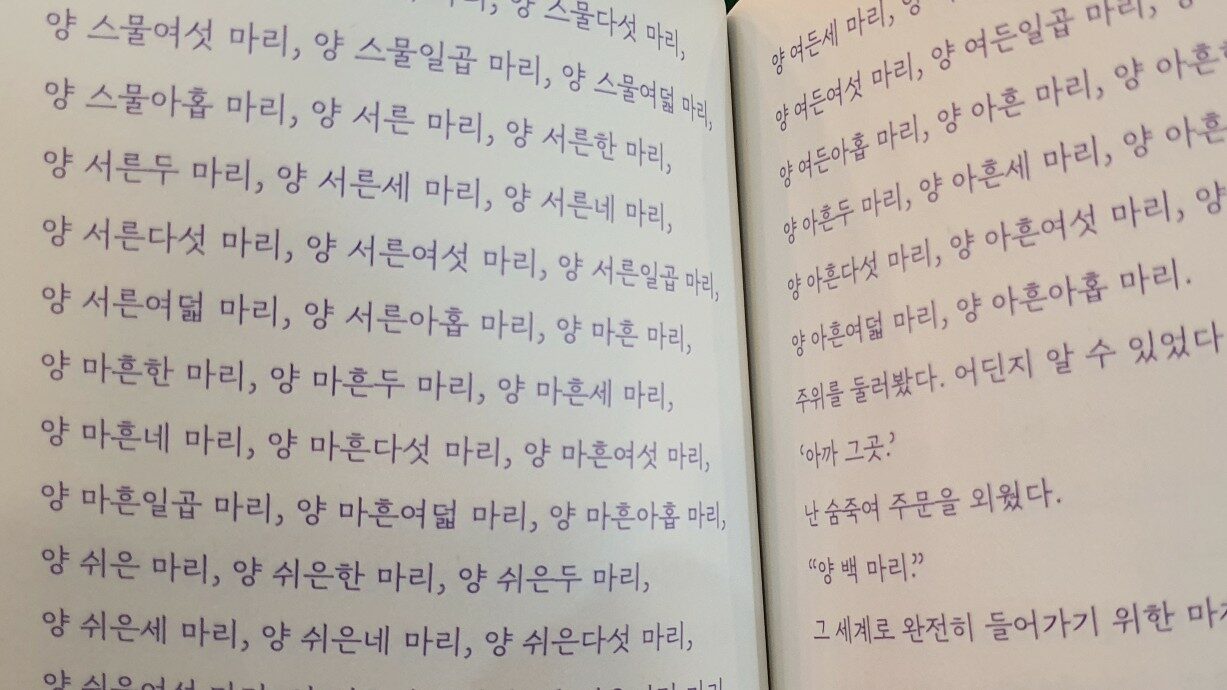 양 스물다섯 마리,
양 스물여섯 마리, 양 스물일곱 마리, 양 스물여덟 마리,
양 스물아홉 마리, 양 서른 마리, 양 서른한 마리,
양 서른두 마리, 양 서른세 마리, 양 서른네 마리,
양 서른다섯 마리, 양 서른여섯 마리, 양 서른일곱 마리,
양 서른여덟 마리, 양 서른아홉 마리, 양 마흔 마리,
양 마흔한 마리, 양 마흔두 마리, 양 마흔세 마리,
양 마흔네 마리, 양 마흔다섯 마리, 양 마흔여섯 마리,
양 마흔일곱 마리, 양 마흔여덟 마리, 양 마흔아홉 마리,
양 쉬은 마리, 양 쉬은한 마리, 양 쉬은두 마리,
양 쉬은세 마리, 양 쉬은네 마리, 양 쉬은다섯 마리,
양 여든세 마리,
양 여든여섯 마리, 양 여든일곱 마리,
양 여든아홉 마리, 양 아흔 마리, 양
양 아흔두 마리, 양 아흔세 마리, 양
양 아흔다섯 마리, 양 아흔여섯 마리, 양
양 아흔여덟 마리, 양 아흔아홉 마리.
주위를 둘러봤다. 어딘지 알 수 있었다
‘아까 그곳.’
난 숨죽여 주문을 외웠다.
“양 백 마리.”
그 세계로 완전히 들어가기 위한